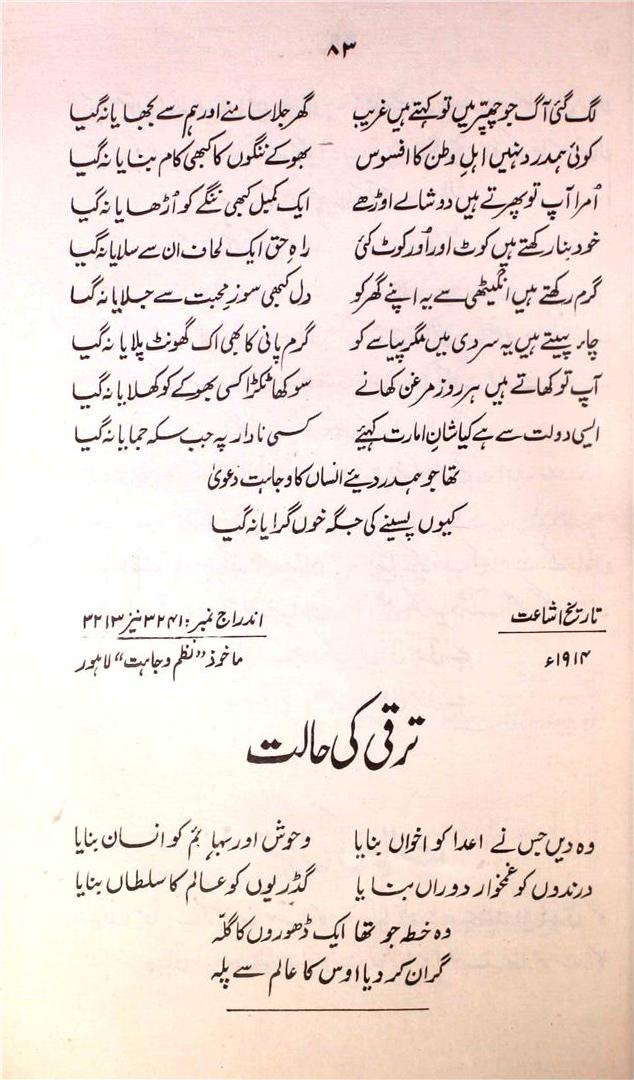 ۸۳
لگ گئی آگ جو چھپّر میں تو کہتے ہیں غریب گھر جلا سامنے اور ہم سے بجھا یا نہ گیا
کوئی ہمدرد نہیں اہلِ وطن کا افسوس بھوکے ننگوں کا کبھی کام بنا یا نہ گیا
اُمرا آپ تو پھرتے ہیں دوشالے اوڑھے ایک کمبل کبھی ننگے کو اُڑھا یا نہ گیا
خود بنا رکھتے ہیں کوٹ اور اُورکوٹ کئی راہِ حق ایک لحاف ان سے سلایا نہ گیا
گرم رکھتے ہیں انگیٹھی سے یہ اپنے گھر کو دل کبھی سوزِ محبت سے جلایا نہ گیا
چاء پیتے ہیں یہ سردی میں مگر پیاسے کو گرم پانی کا بھی اک گھونٹ پلا یا نہ گیا
آپ تو کھاتے ہیں ہر روز مرغن کھانے سوکھا ٹکڑا کسی بھوکے کو کھلا یا نہ گیا
ایسی دولت سے ہے کیا شانِ امارت کہیئے کسی نادار پہ جب سکہ جمایا نہ گیا
تھا جو ہمدردیٔے انساں کا وجاہت دعویٰ
کیوں پسینے کی جگہ خوں گرایا نہ گیا
تاریخ اشاعت اندراج نمبر: ۳۲۴۱ نیز ۳۲۱۳
۱۹۱۴ء ماخوذ "نظم وجاہت" لاہور
ترقی کی حالت
وہ دیں جس نے اعدا کو اخواں بنایا وحوش اور بہایم کو انسان بنایا
درندوں کو غمخوار دوراں بنا یا گڈریوں کو عالم کا سلطاں بنایا
وہ خطہ جو تھا ایک ڈھوروں کا گلّہ
گراں کر دیا اوس کا عالم سے پلہ